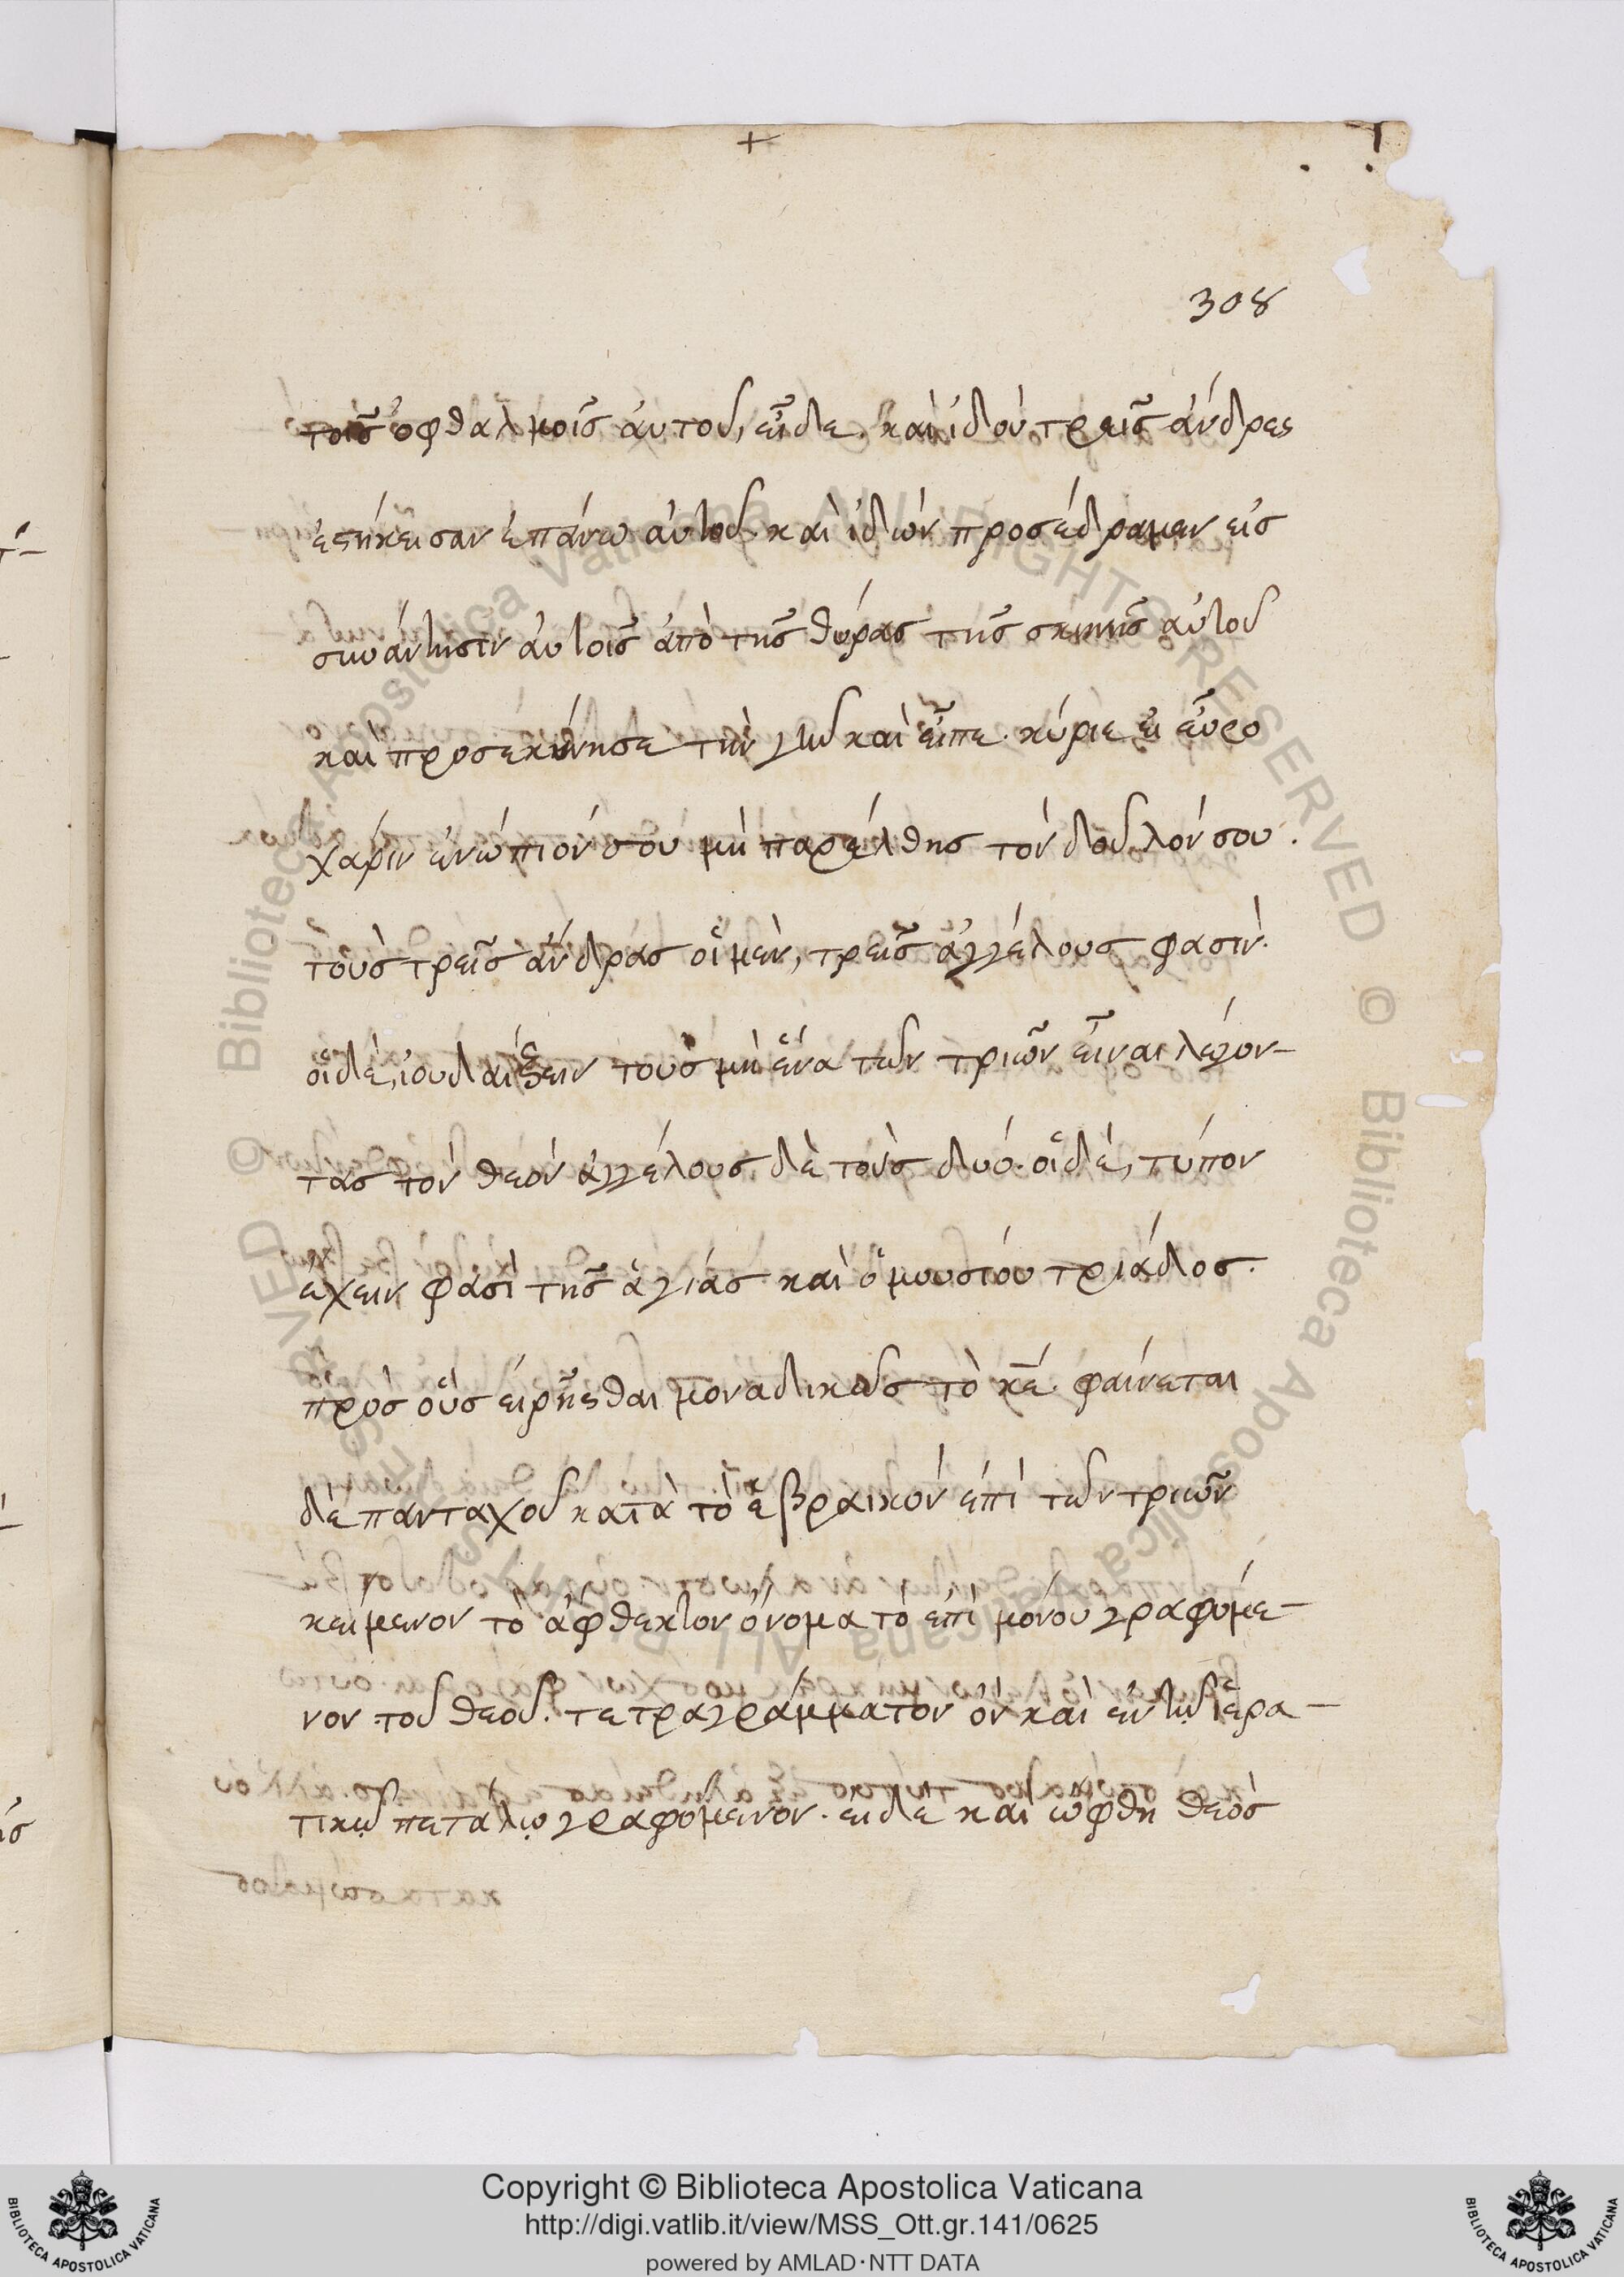 308
τοῖς ὀφθαλμοῖς ἀυτοῦ, εἶδε. καὶ ἰδού τρεῖς ἄνδρες
ἑςήκεισαν ἐπάνω ἀυτοῦ. καὶ ἰδών προσέδραμεν εἰς
συνάντησιν ἀυτοῖς ἀπὸ τῆς θύρας τῆς σκηνῆς ἀυτοῦ
καὶ προσεκύνησε τὴν γῆν καὶ εἶπε. κύριε εἰ εὗρο
χάριν ἐνώπιόν σου μὴ παρέλθης τόν δοῦλόν σου.
τοὺς τρεῖς ἄνδρας οἱ μὲν, τρεῖς ἀγγέλους φασίν.
οἱ δὲ, ἰουδαΐζειν τοὺς μὴ ἕνα τῶν τριῶν εἶναι λέγον-
τας τὸν θεόν ἀγγέλους δὲ τοὺς δυό. οἱ δὲ, τύπον
ἔχειν φασὶ τῆς ἁγίας καὶ ὁμουσίου τριάδος.
πρὸς οὓς εἰρῆςθαι μοναδικῶς τὸ κε. φαίνεται
δὲ πανταχοῦ κατὰ τὸ ἑβραικόν ἐπὶ τῶν τριῶν
κείμενον τὸ ἄφθεκτον ὄνομα τὸ ἐπὶ μόνου γραφόμε-
νον τοῦ θεοῦ. τετραγράμματον ὂν καὶ ἐν τῶ ἱερα-
τικῷ πετάλῳ γραφόμενον. εἰ δὲ καὶ ὤφθη θεός
Copyright © Biblioteca Apostolica Vaticana
http://digi.vatlib.it/view/MSS_Ott.gr.141/0625
powered by AMLAD·NTT DATA
BIBLIOTECA APOSTOLICA VATICANA
BIBLIOTECA APOSTOLICA VATICANA